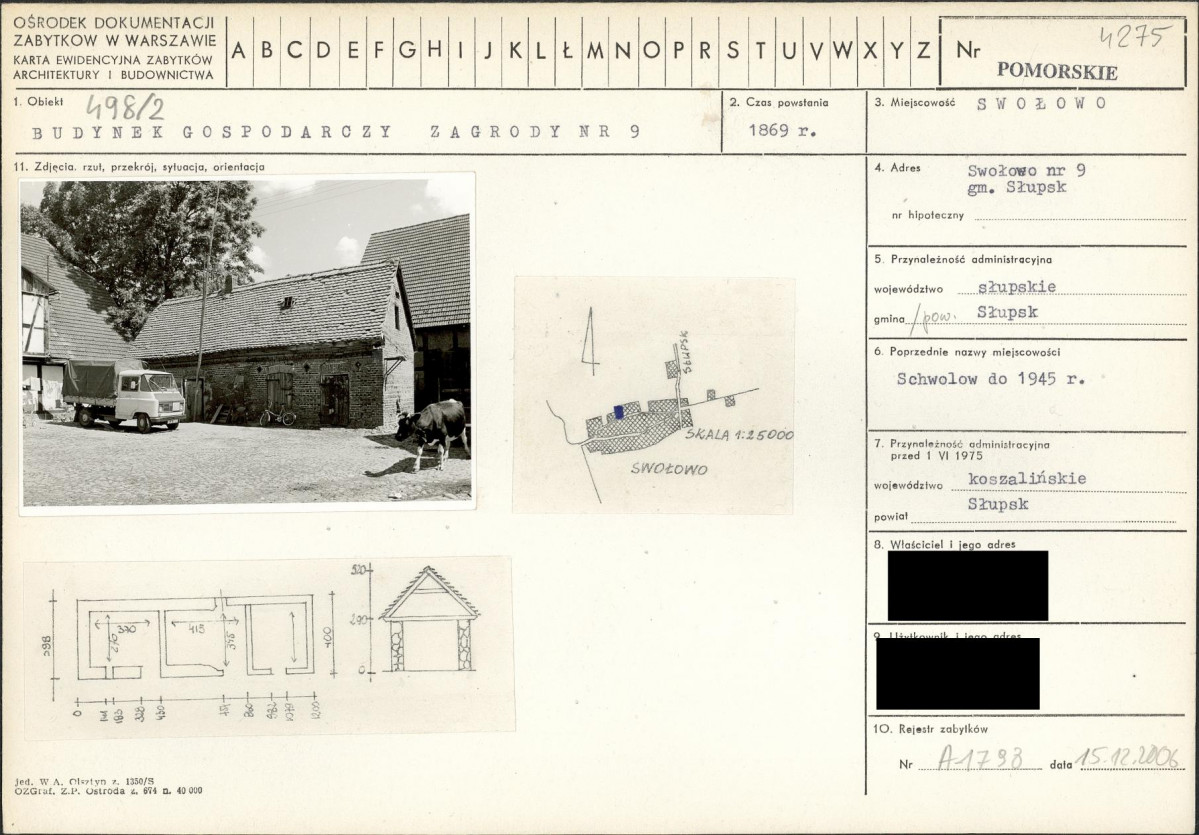 OŚRODEK DOKUMENTACJI
ZABYTKOW W WARSZAWIE
KARTA EWIDENCYJNA ZABYTKÓW
ARCHITEKTURY I BUDOWNICTWA
A B C D E F G H I J K L Ł M N O P R S T U V W X Y Z
Nr 4275
POMORSKIE
1. Obiekt 498/2
BUDYNEK GOSPODARCZY ZAGRODY NR 9
2. Czas powstania
1869 r.
3. Miejscowość SWOŁOWO
11. Zdjęcia. rzut, przekrój, sytuacja, orientacja
4. Adres Swołowo nr 9
gm. Słupsk
nr hipoteczny
5. Przynależność administracyjna
województwo słupskie
gmina /pow. Słupsk
6. Poprzednie nazwy miejscowości
Schwolow do 1945 r.
7. Przynależność administracyjna
przed 1 VI 1975
województwo koszalińskie
powiat Słupsk
8. Właściciel i jego adres
9. Użytkownik i jego adres
10. Rejestr zabytków
Nr A-1793 data 15.12.2006
SŁUPSK
SKALA 1:25000
SWOŁOWO
370
415
400
290
0
0
430
1200
jed. W A. Olsztyn z. 1350/S
OZGraf. Z.P. Ostróda z. 674 n. 40 000